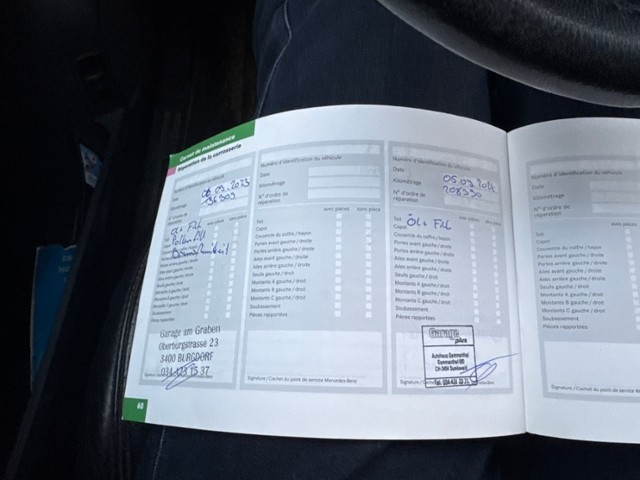 Carnet de maintenance
Réparation de la carrosserie
Numéro d'identification du véhicule
Date 06.09.2023
Kilométrage
N° d'ordre de réparation
avec pièces sans pièce
Öl + Filt
60
Garage am Graben
Oberburgstrasse 23
3400 BURGDORF
034 423 15 37
Numéro d'identification du véhicule
Date
Kilométrage
N° d'ordre de
réparation
avec pièces sans pièce
Toit
Capot
Couvercle du coffre / hayon
Portes avant gauche / droite
Portes arrière gauche / droite
Ailes avant gauche / droite
Ailes arrière gauche / droite
Seuils gauche / droit
Montants A gauche / droit
Montants B gauche / droit
Montants C gauche / droit
Soubassement
Pièces rapportées
Signature / Cachet du point de service Mercedes-Benz
Numéro d'identification du véhicule
Date
Kilométrage 208350
N° d'ordre de
réparation
avec pièces sans pièce
Toit Öl + Filt
Capot
Couvercle du coffre / hayon
Portes avant gauche / droite
Portes arrière gauche / droite
Ailes avant gauche / droite
Ailes arrière gauche / droite
Seuils gauche / droit
Montants A gauche / droit
Montants B gauche / droit
Montants C gauche / droit
Soubassement
Pièces rapportées
Garage
plus
Autohaus Gammenthal
Gammenthal
CH-3454 Sumiswald
Numéro d'identification du véhicule
Date
Kilométrage
N° d'ordre de
réparation
Toit
Capot
Couvercle du coffre / hayon
Portes avant gauche / droite
Portes arrière gauche / droite
Ailes avant gauche / droite
Ailes arrière gauche / droite
Seuils gauche / droit
Montants A gauche / droit
Montants B gauche / droit
Montants C gauche / droit
Soubassement
Pièces rapportées
Signature / Cachet du point de service